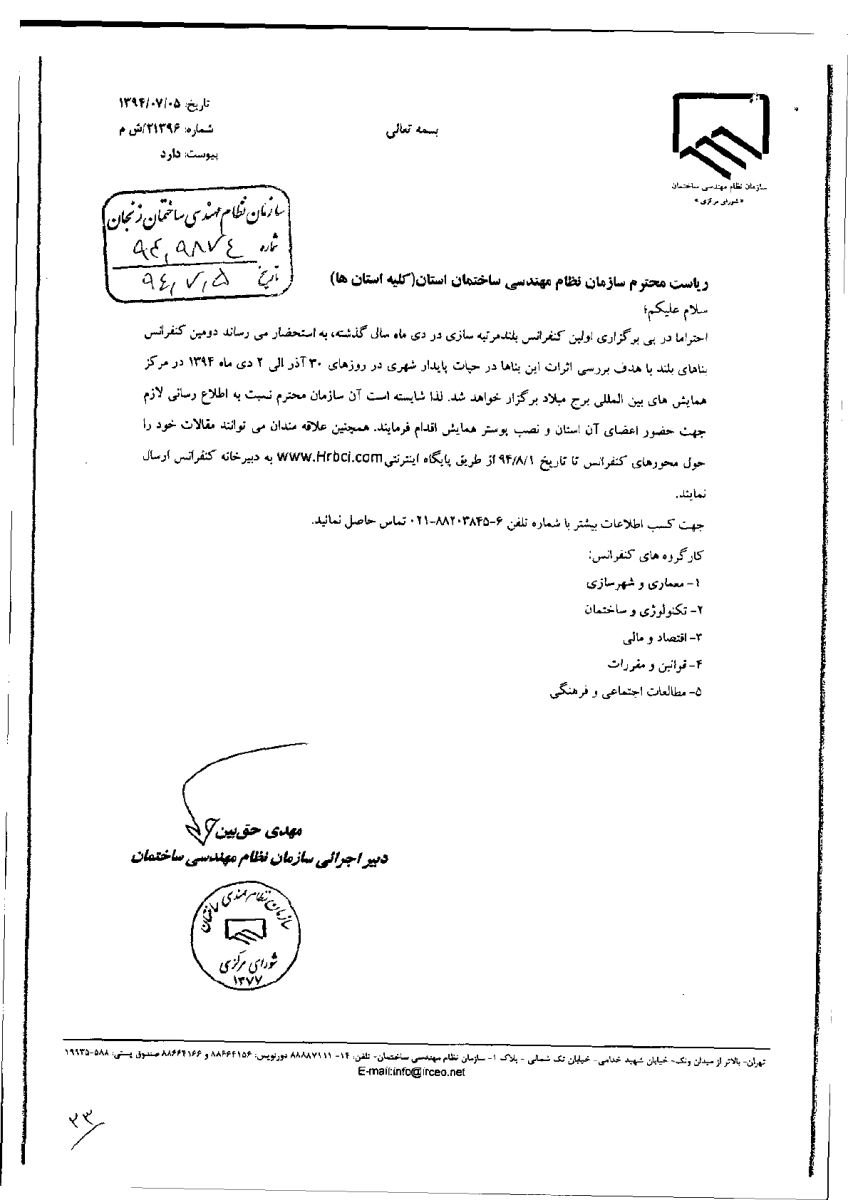 تاریخ: ۱۳۹۴/۰۷/۰۵
شماره: ۲۱۳۹۶/ش م
پیوست: دارد
بسمه تعالی
سازمان نظام مهندسی ساختمان
«شورای مرکزی»
سازمان نظام مهندسی ساختمان زنجان
شماره ۹۴,۹۸۷۴
تاریخ ۹۴,۷,۵
ریاست محترم سازمان نظام مهندسی ساختمان استان(کلیه استان ها)
سلام علیکم؛
احتراما در پی برگزاری اولین کنفرانس بلندمرتبه سازی در دی ماه سال گذشته، به استحضار می رساند دومین کنفرانس
بناهای بلند با هدف بررسی اثرات این بناها در حیات پایدار شهری در روزهای ۳۰ آذر الی ۲ دی ماه ۱۳۹۴ در مرکز
همایش های بین المللی برج میلاد برگزار خواهد شد. لذا شایسته است آن سازمان محترم نسبت به اطلاع رسانی لازم
جهت حضور اعضای آن استان و نصب پوستر همایش اقدام فرمایند. همچنین علاقه مندان می توانند مقالات خود را
حول محورهای کنفرانس تا تاریخ ۹۴/۸/۱ از طریق پایگاه اینترنتی www.Hrbci.com به دبیرخانه کنفرانس ارسال
نمایند.
جهت کسب اطلاعات بیشتر با شماره تلفن ۶-۸۸۲۰۳۸۴۵-۰۲۱ تماس حاصل نمائید.
کارگروه های کنفرانس:
۱- معماری و شهرسازی
۲- تکنولوژی و ساختمان
۳- اقتصاد و مالی
۴- قوانین و مقررات
۵- مطالعات اجتماعی و فرهنگی
مهدی حق‌بین
دبیر اجرائی سازمان نظام مهندسی ساختمان
سازمان نظام مهندسی ساختمان
شورای مرکزی
۱۳۷۷
تهران- بالاتر از میدان ونک- خیابان شهید خدامی- خیابان تک شمالی - پلاک ۱- سازمان نظام مهندسی ساختمان- تلفن: ۱۴- ۸۸۸۸۷۱۱۱ دورنویس: ۸۸۶۶۴۱۵۶ و ۸۸۶۶۴۱۶۶ صندوق پستی: ۵۸۸-۱۹۹۳۵
E-mail:info@irceo.net
۳۳